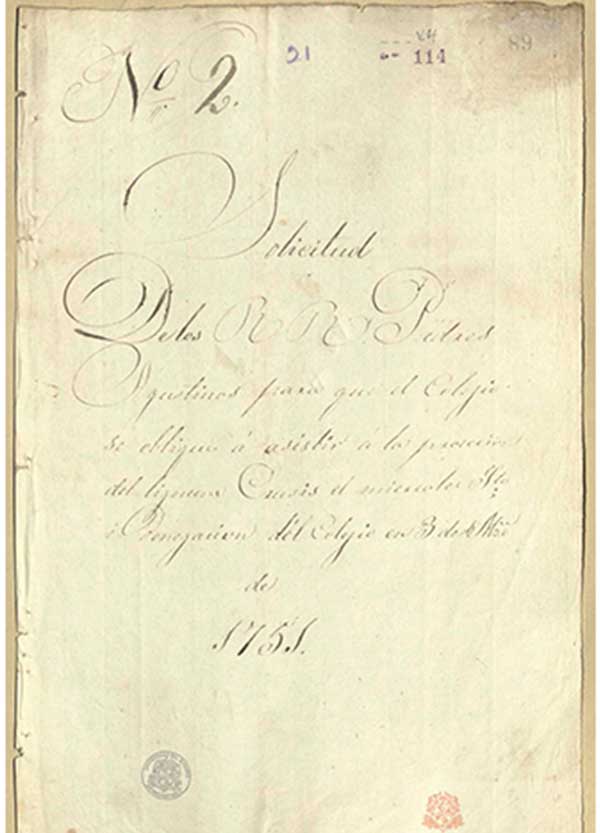 24
No 2. 21 114 89
Solicitud
De los R R. Padres
Agustinos para que el Colejio
se oblique á asistir á la procecion
del lignum Crusis el miercoles Sto
i Denegacion del Colejio en 3 de
de
1751.